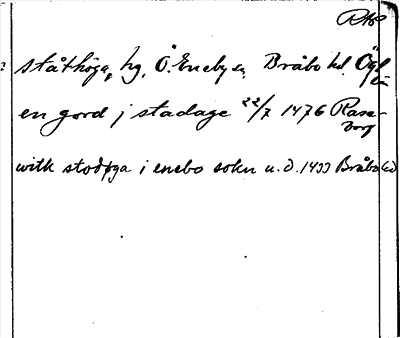 RAP
ståthöga, hg, Ö. Eneby sn, Bråbo hd Ögl
en gord j stadage 22/7 1476 Rase-
borg
witk stodhga i enebo sokn u. d. 1433 Bråbo hd